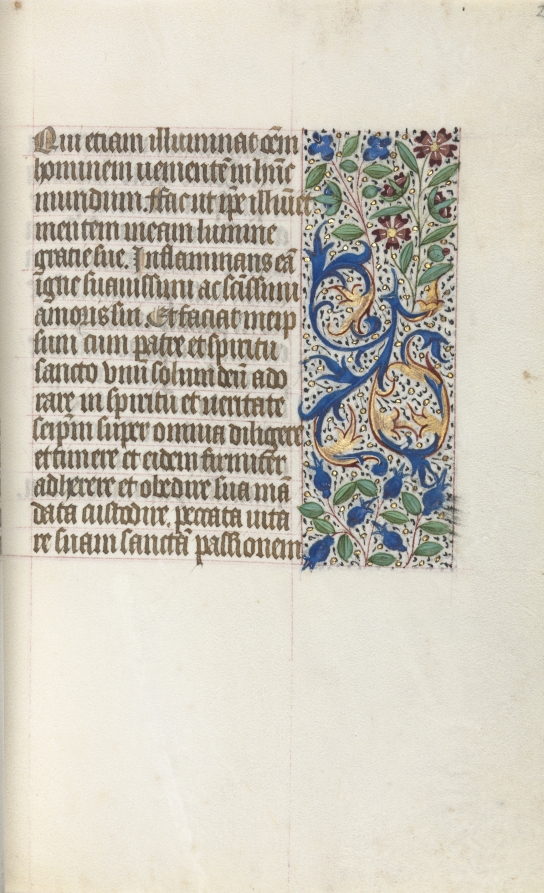 Qui etiam illuminat oēm
hominem uenientē in hūc
mundum. Fac ut ip̄e illuīet
mentem meam lumine
gratie sue. Inflammans eā
igne suauissimi ac scīssimi
amoris sui. Et faciat meip
sum cum patre et spiritu
sancto vnū solum deū ado
rare in spiritu et ueritate
seip̄m super omnia diligere
et timere et eidem firmiter
adherere et obedire sua mā
data custodire. peccata uita
re suam sanctā passionem